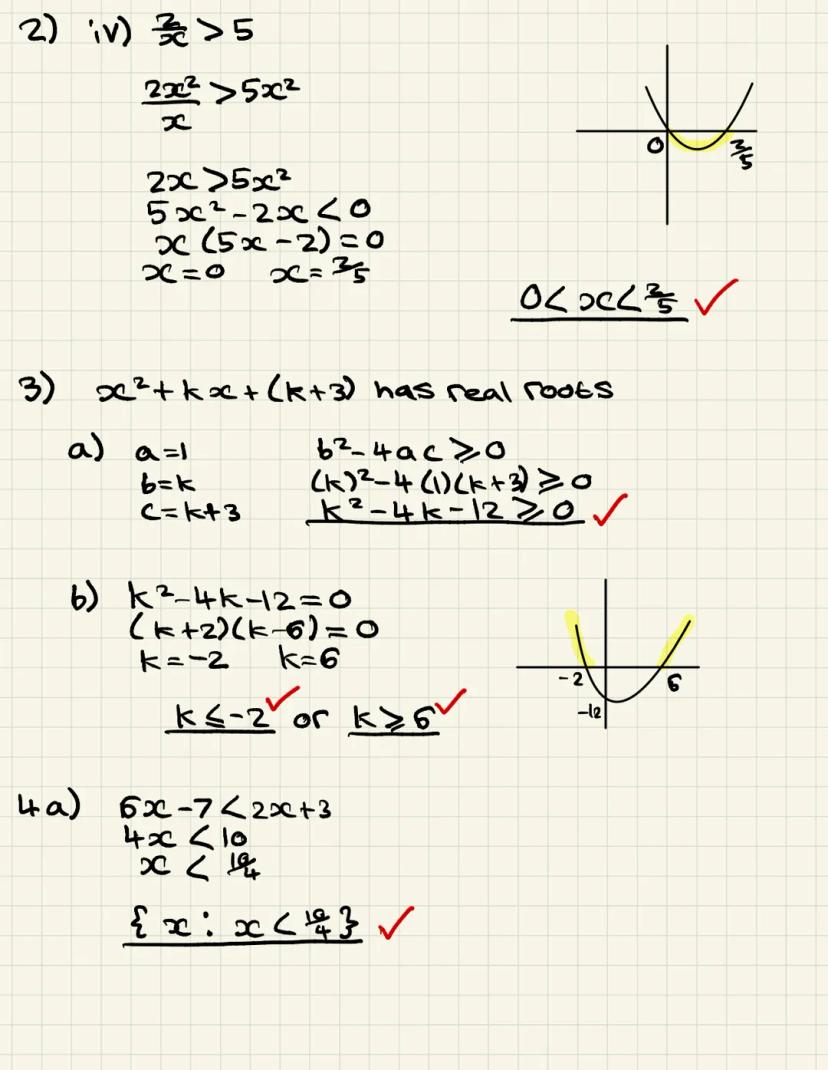 2) iv) 2/x > 5
2x²/x > 5x²
2x > 5x²
5x² - 2x < 0
x (5x - 2) = 0
x = 0 x = 2/5
0 2/5
0 < x < 2/5 ✓
3) x² + kx + (k+3) has real roots
a) a=1 b² - 4ac ⩾ 0
b=k (k)² - 4(1)(k+3) ⩾ 0
c=k+3 k² - 4k - 12 ⩾ 0 ✓
b) k² - 4k - 12 = 0
(k+2)(k-6) = 0
k = -2 k = 6
-2 6
-12
k ⩽ -2 ✓ or k ⩾ 6 ✓
4a) 6x - 7 < 2x + 3
4x < 10
x < 10/4
{ x : x < 10/4 } ✓